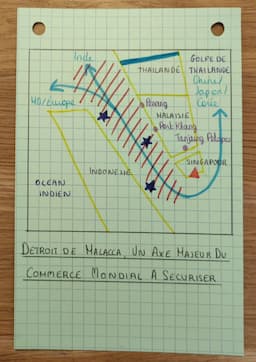 Inde
GOLFE DE
THAÏLANDE
THAÏLANDE
Chine/
Japon/
Corée
MO/Europe
Penang
MALAISIE
Port Klang
Tanjung Pelepas
SINGAPOUR
INDONÉSIE
OCÉAN
INDIEN
DETROIT DE MALACCA, UN AXE MAJEUR DU
COMMERCE MONDIAL A SECURISER